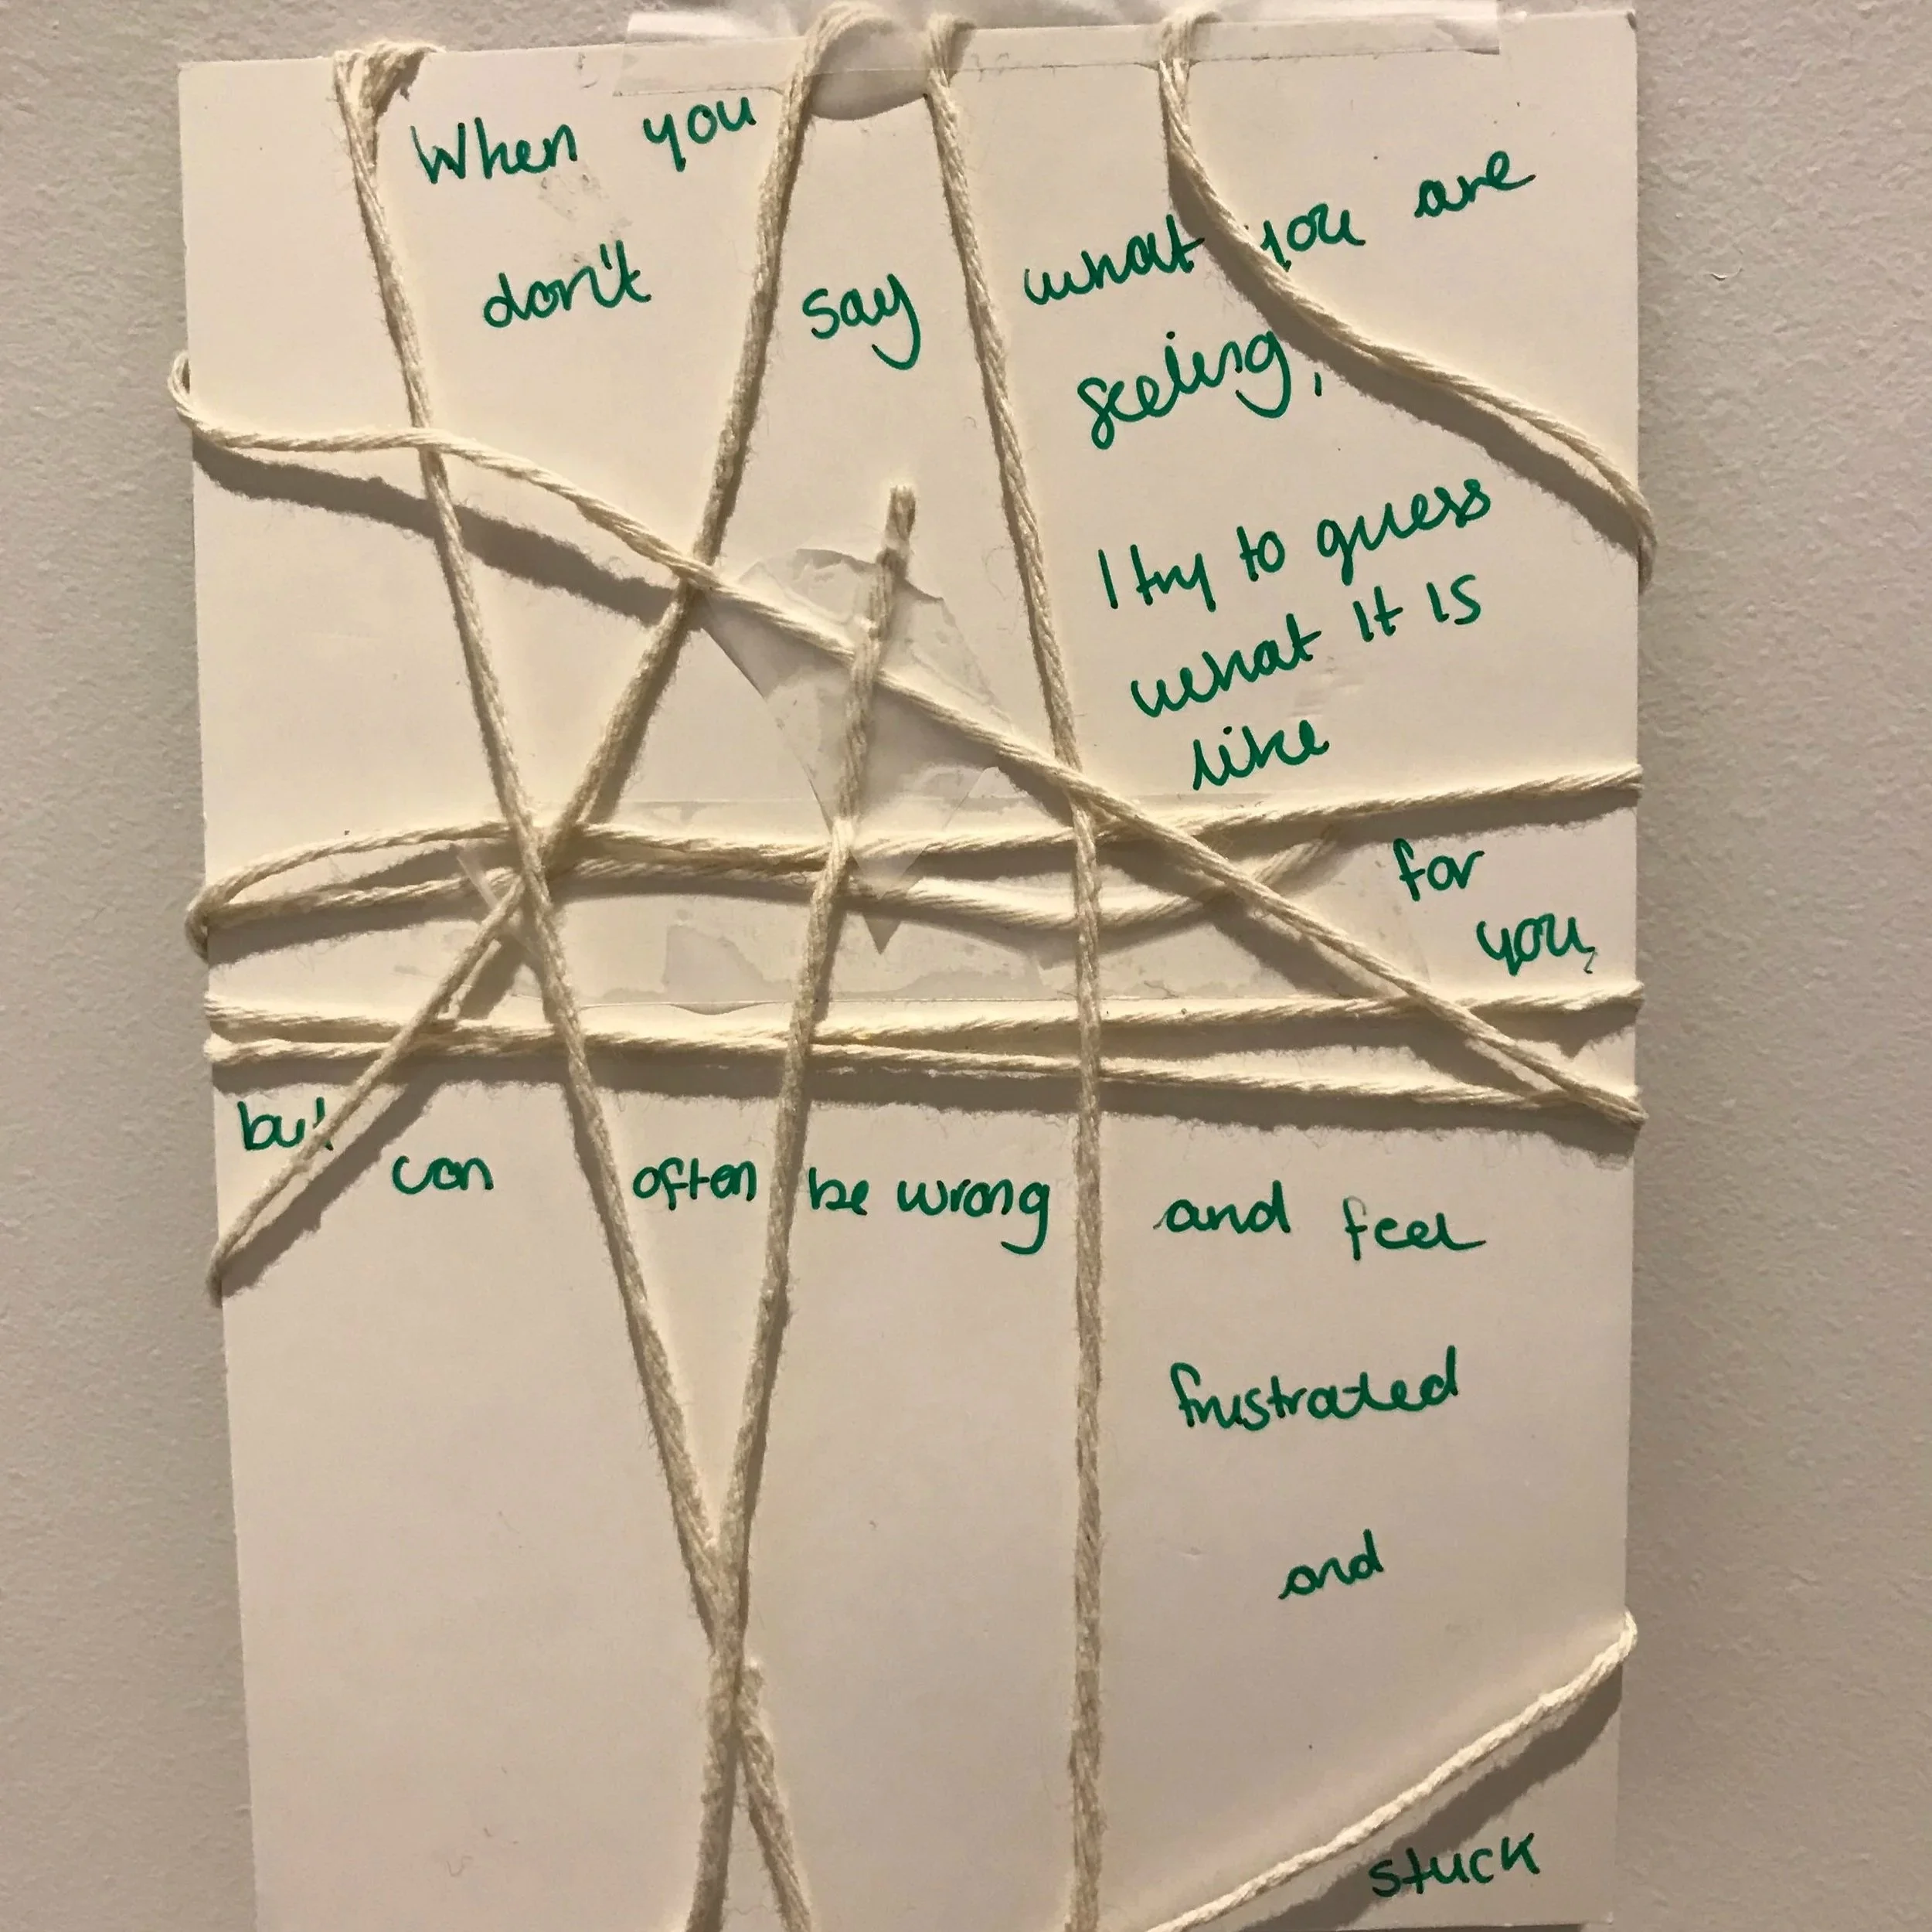 When you
don't say what you are
seeing,
I try to guess
what it is
like
for
you,
but can often be wrong and feel
frustrated
and
stuck